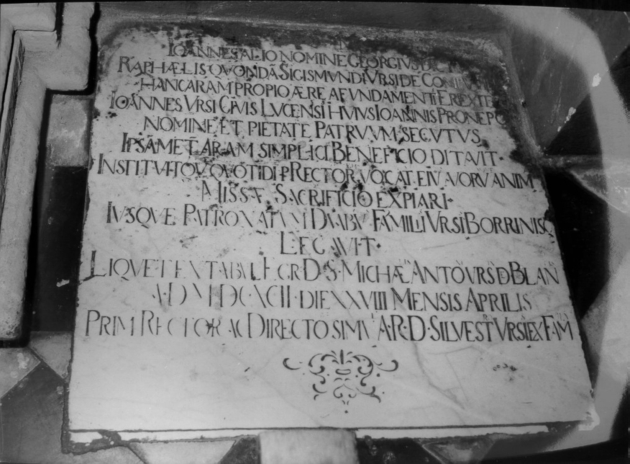 IOANNES ALIO NOMINE GEORGIVS
RAPHÆLIS QVONDA SIGISMVNDI VRSI DE
HANC ARAM PROPIO ÆRE A FVNDAMENTI EREXIT
IOANNES VRSI CIVIS LVCENSI HVIVS IOANNIS PRONEPO
NOMINE ET PIETATE PATRVVM SECVTVS
IPSAMET ARAM SIMPLICI BENEFICIO DITAVIT
INSTITVÆTQV QVOTIDI P RECTOR VOCAT EIV AVORV ANIM
MISSÆ SACRIFICIO EXPIARI
IVSQVE PATRONATVM DVABV FAMILII VRSI BORRINISQ
LEGAVIT
LIQVET EX TABVL EGR D S MICHÆ ANTO VRS D BLAN
A D M DC XCII DIE XXVIII MENSIS APRILIS
PRIM RECTOR AC DIRECTO SIMV A R D SILVEST VRSI EX FAM